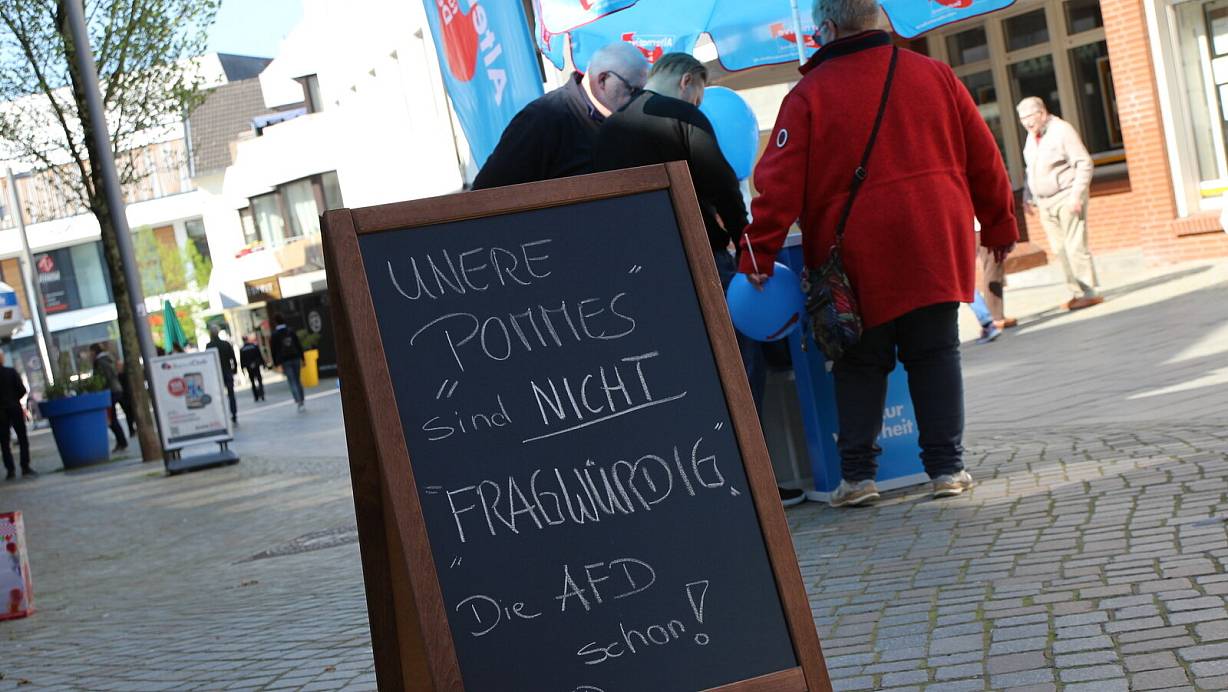 UNERE
"POMMES"
sind NICHT
"FRAGWÜRDIG"
Die AFD
schon!
Alte